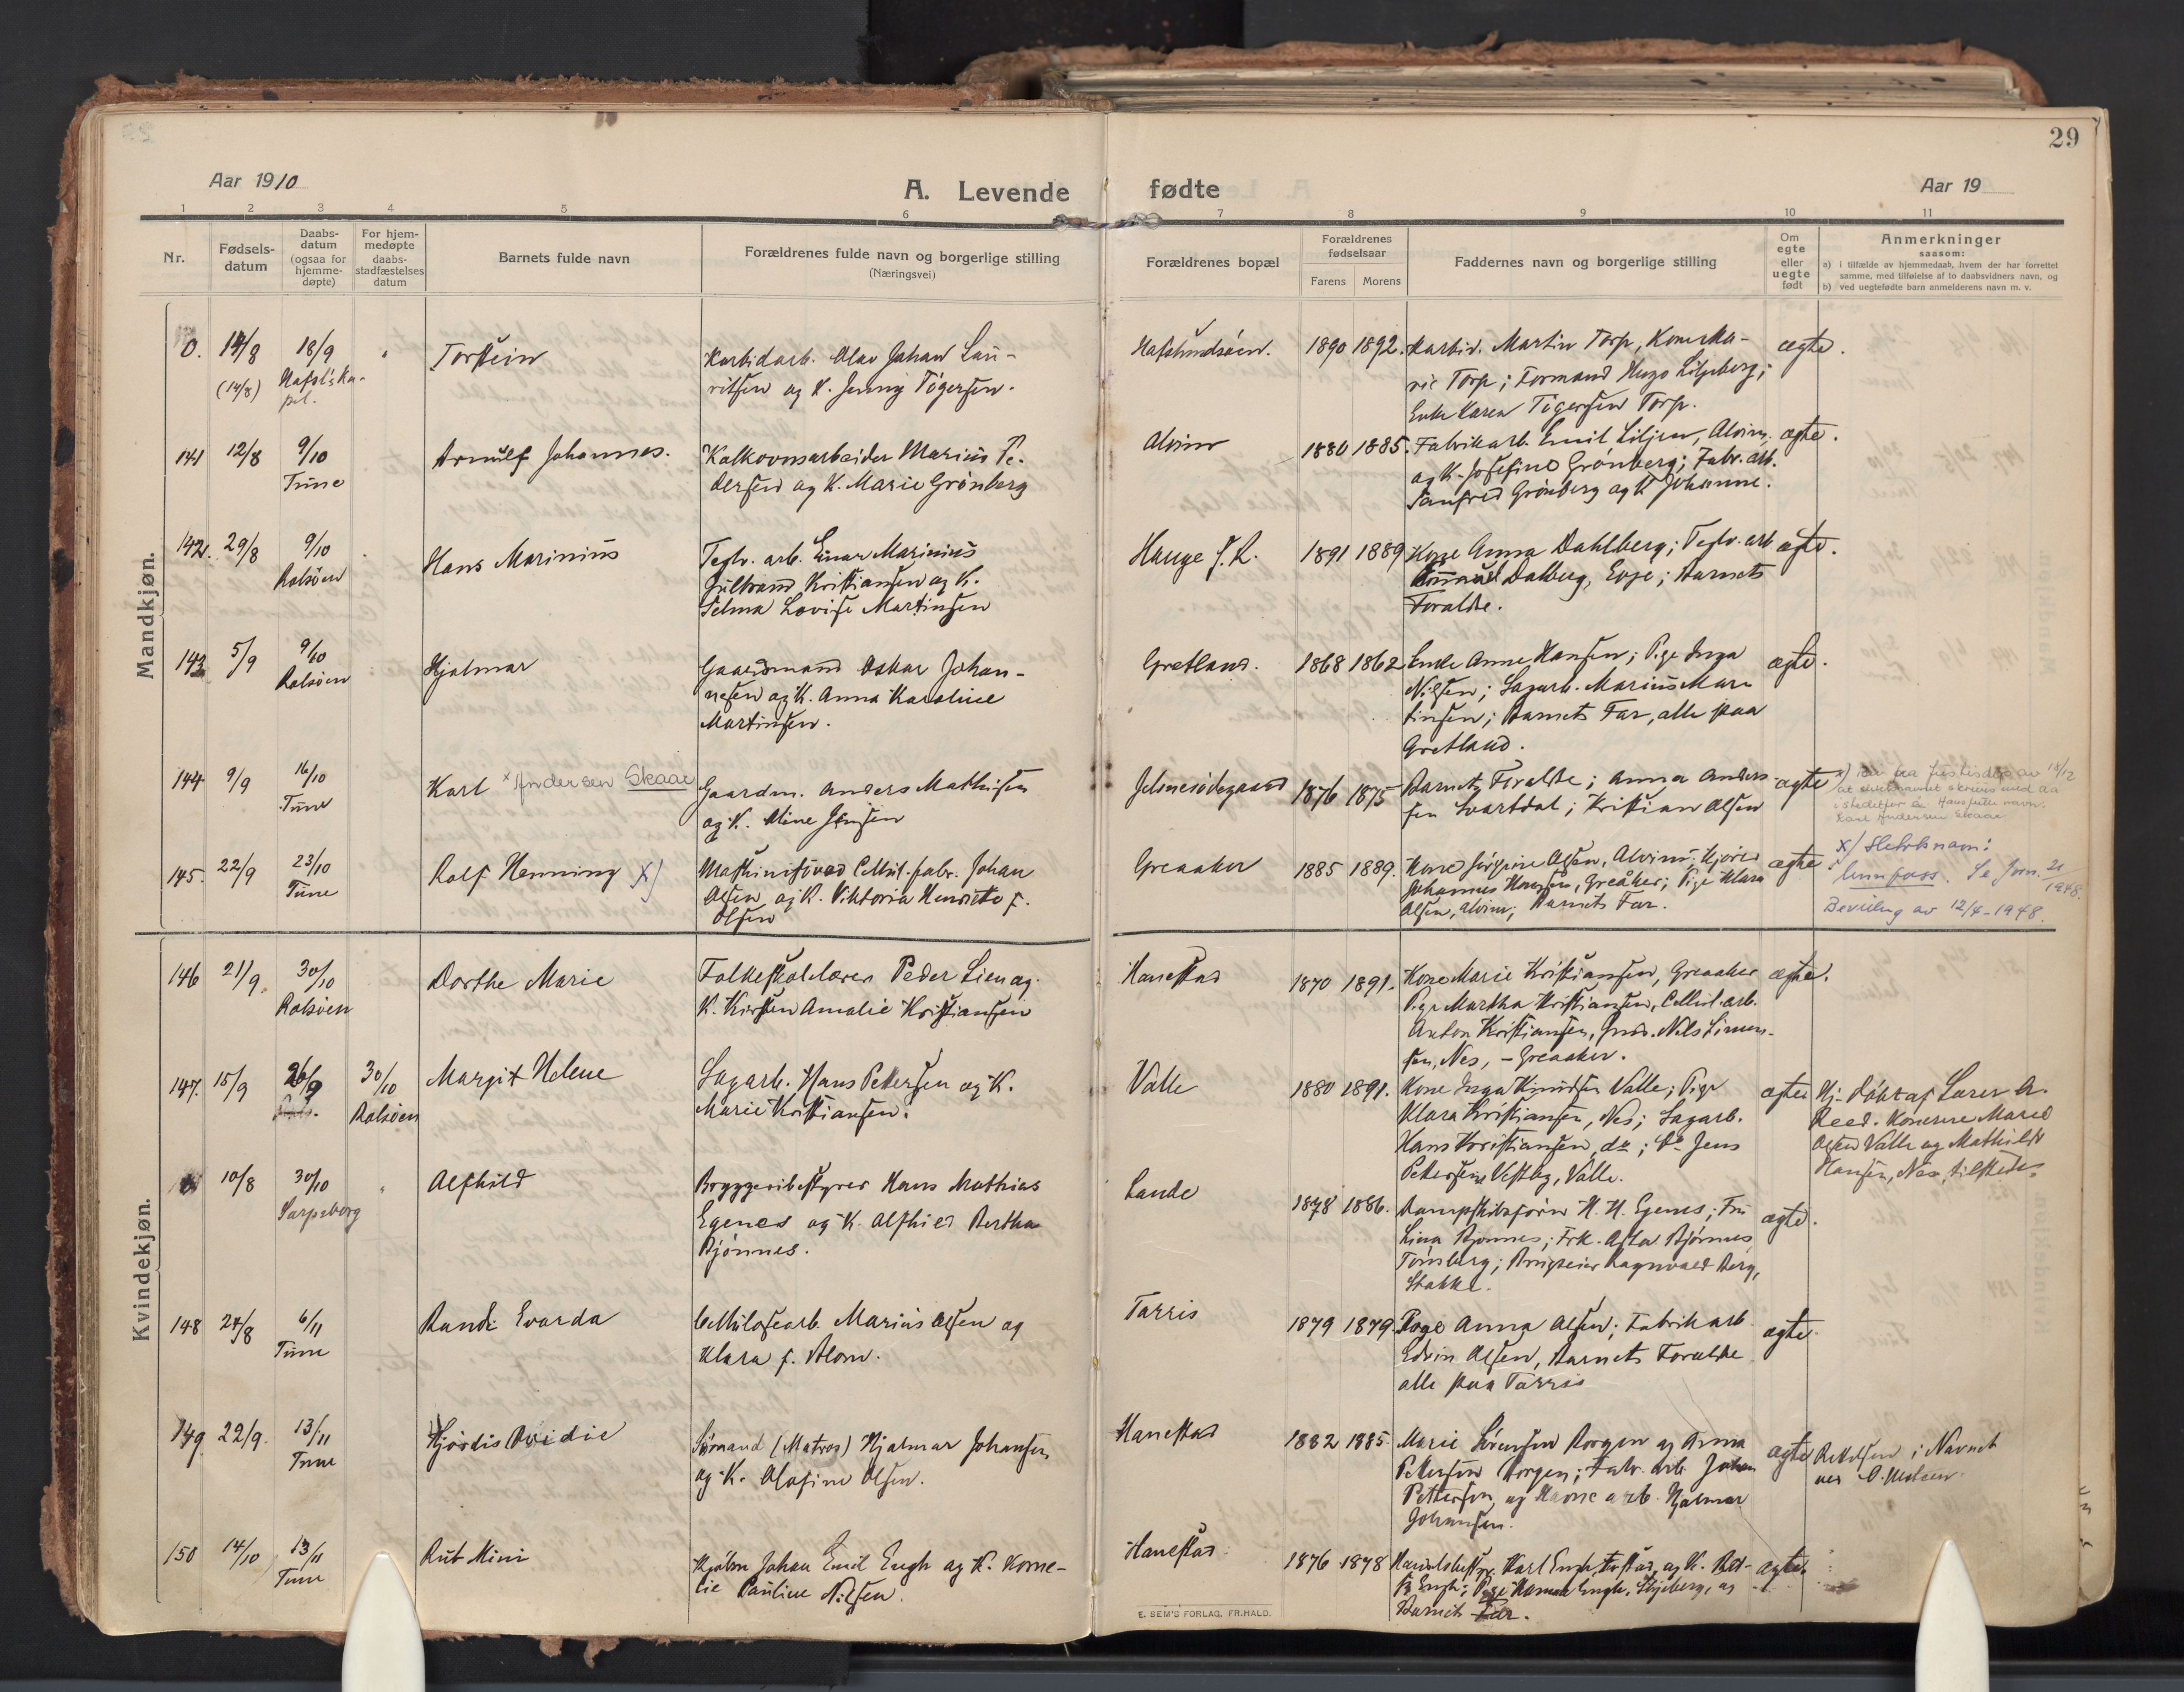 29
Aar 1910
A. Levende fødte
Aar 19
1 2 3 4 5 6 7 8 9 10 11
Nr.
Fødsels-
datum
Daabs-
datum
(ogsaa for
hjemme-
døpte)
For hjem-
medøpte
daabs-
stadfæstelses
datum
Barnets fulde navn
Forældrenes fulde navn og borgerlige stilling
(Næringsvei)
Forældrenes bopæl
Forældrenes
fødselsaar
Farens Morens
Faddernes navn og borgerlige stilling
Om
egte
eller
uegte
født
Anmerkninger
saasom:
a) i tilfælde av hjemmedaab, hvem der har forrettet
samme, med tilføielse af to daabsvidners navn, og
b) ved uegtefødte barn anmelderens navn m. v.
Mandkjøn.
0. 14/8 (14/8)
18/9
Hafsl's Ka-
pel.
Torstein
Karbidarb. Olav Johan Lau-
ritsen og K. Jenny Tögersen.
Hafslundsöen.
1890 1892.
Karbid. Martin Torp, Kone Ma-
rie Torp; Formand Hugo Liljeberg;
Enke Karen Tögersen Torp.
ægte.
141 12/8
9/10
Tune
Arnulf Johannes.
Kalkovnsarbeider Marius Pe-
dersen og K. Marie Grönberg
Alvim
1880 1885.
Fabrikarb. Emil Liljen, Alvim,
og K. Josefine Grönberg; Fabr. arb.
Grönberg og K Johanne.
ægte.
142. 29/8
9/10
Rolsöen
Hans Marinius
Teglv. arb. Einar Marinius
Gulbrand Kristiansen og K.
Selma Lovise Martinsen
Hauge
1891 1889
Kone Anna Dahlberg; Teglv. arb
Dalberg, Evje; Barnets
Foraldre.
ægte.
143 5/9
9/10
Rolsöen
Hjalmar
Gaardmand Oskar Johan-
nesen og K. Anna Karoline
Martinsen.
Gretland.
1868 1862
Enke Anne Hansen; Pige Inga
Nilsen; Sagarb. Marius Mar-
tinsen; Barnets Far, alle paa
Gretland.
ægte.
144 9/9
16/10
Tune
Karl x Andersen Skaar
Gaardm. Anders Mathisen
og K. Mine Jensen
Jelsnesödegaard
1876 1875
Barnets Foraldre; Anna Anders
sen Svartdal; Kristian Olsen
ægte
x) fra Justisdep av 18/12
at skrives med aa
istedetfor å. Hans fulle navn.
Karl Andersen Skaar
145. 22/9
23/10
Tune
Rolf Henning x)
Maskinist ved Cellul. fabr. Johan
Olsen og K. Viktoria Henriette f.
Olsen
Greaaker
1885 1889.
Kone Jörgine Olsen, Alvim;
Johannes Hansen, Greåker; Pige Klara
Olsen, Alvim; Barnets Far.
ægte
x) Slektsnam:
Se Jorn. 21/1948.
Bevilling av 12/4-1948.
Kvindekjøn.
146 21/9
30/10
Rolsöen
Dorthe Marie
Folkeskolelærer Peder Lien og
K. Kirsten Amalie Kristiansen
Hanestad
1870 1891.
Kone Marie Kristiansen, Greaaker
Pige Martha Kristiansen, Cellul. arb.
Anton Kristiansen, Nils Simen-
sen, Nes, - Greaaker.
ægte.
147. 15/9
26/9
30/10
Rolsöen
Margit Helene
Sagarb. Hans Pettersen og K.
Marie Kristiansen.
Valle
1880 1891.
Kone Inga Knudsen Valle; Pige
Klara Kristiansen, Nes; Sagarb.
Hans Kristiansen, do; do Jens
Pettersen, Vestby, Valle.
ægte
Hj. döbt af Lærer A.
Reed. Konerne Marie
Olsen Valle og Mathilde
Hansen, Nes, tilstede.
10/8
30/10
Sarpsborg
Alfhild
Bryggeribestyrer Hans Mathias
Egenes og K. Alfhild Bertha
Björnnes.
Lande
1878 1886.
Dampskibsförer H. H. Egenes; Fru
Lina Björnnes; Frk. Asta Björnnes
Tönsberg; Brugseier Ragnvald Berg,
Stokke.
ægte.
148 24/8
6/11
Tune
Randi Evarda
Cellulosearb. Marius Olsen og
Klara f. Blom.
Tarris
1879 1879
Pige Anna Olsen; Fabrikarb.
Edvin Olsen, Barnets Foraldre
alle paa Tarris
ægte.
149 22/9.
13/11
Tune
Hjördis Ovidie
Sömand (Matros) Hjalmar Johansen
og K. Olafine Olsen.
Hanestad
1882 1885.
Marie Sörensen Borgen og Anna
Pettersen Borgen; Fabr. arb Johan
Pettersen, og Havne arb. Hjalmar
Johansen.
ægte
Rettelsen i Navnet
ved
150 14/10
13/11
Tune
Rut Mimi
Johan Emil Engh og K. Korne-
lie Pauline Nilsen.
Hanestad
1876 1878
Karl Engh, og K. Ber-
ta Engh; Pige Engh, Skjeberg, og
Barnets Far.
ægte
E. SEM'S FORLAG, FR.HALD.